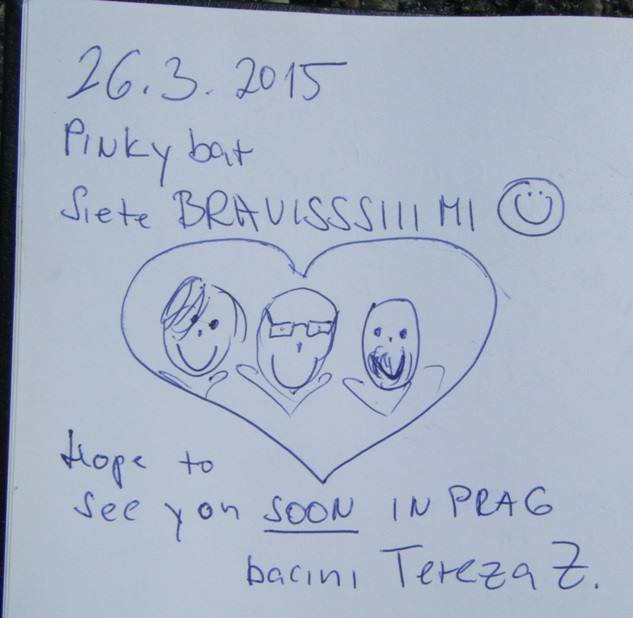 26.3.2015
Pinky bar
Siete BRAVISSSIIIMI
Hope to
see you SOON IN PRAG
bacini Tereza Z.